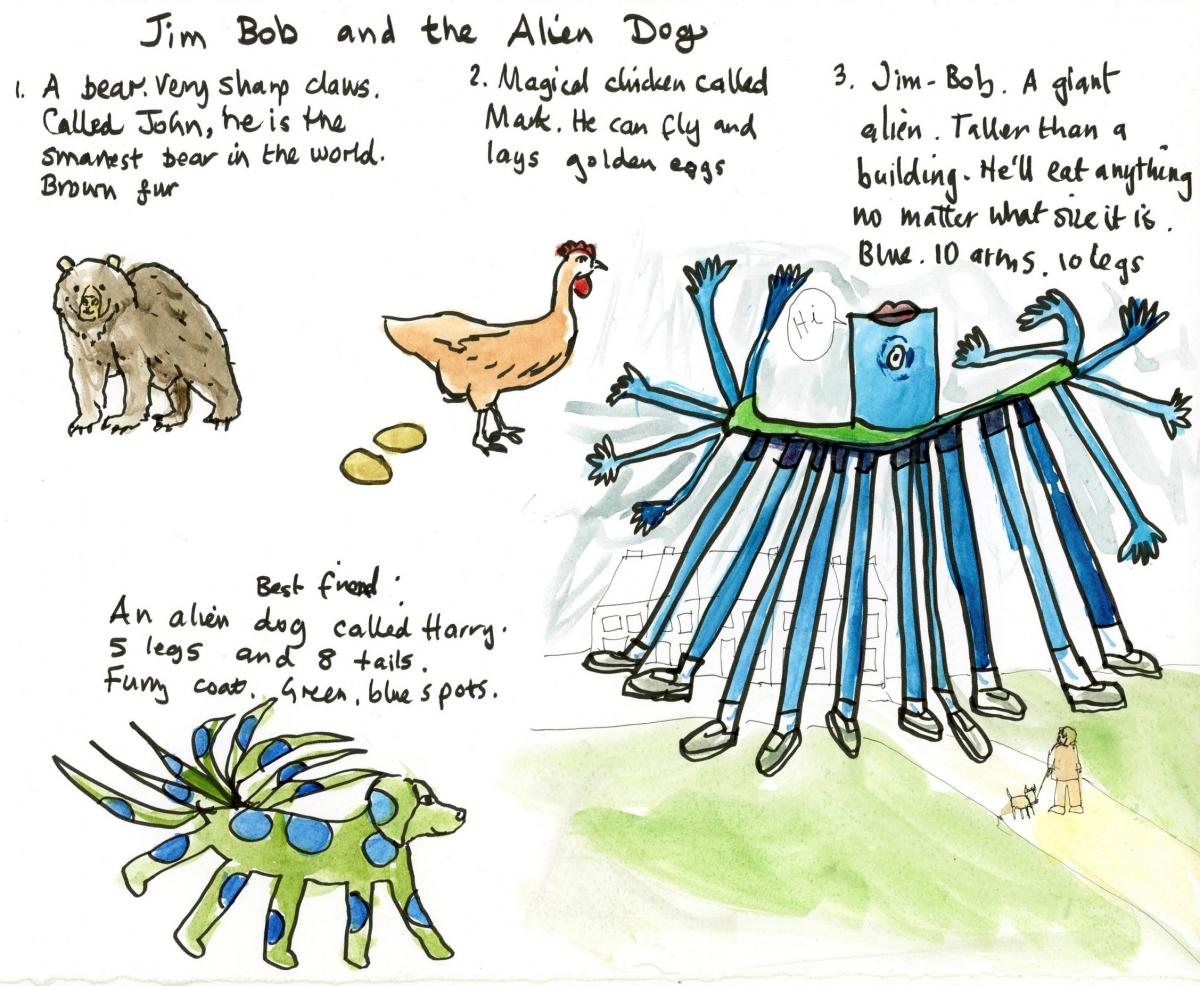 Jim Bob and the Alien Dog
1. A bear. Very sharp claws.
Called John, he is the
smartest bear in the world.
Brown fur
2. Magical chicken called
Mark. He can fly and
lays golden eggs
3. Jim-Bob. A giant
alien. Taller than a
building. He'll eat anything
no matter what size it is.
Blue. 10 arms. 10 legs
Hi
Best friend:
An alien dog called Harry.
5 legs and 8 tails.
Furry coat. Green, blue spots.